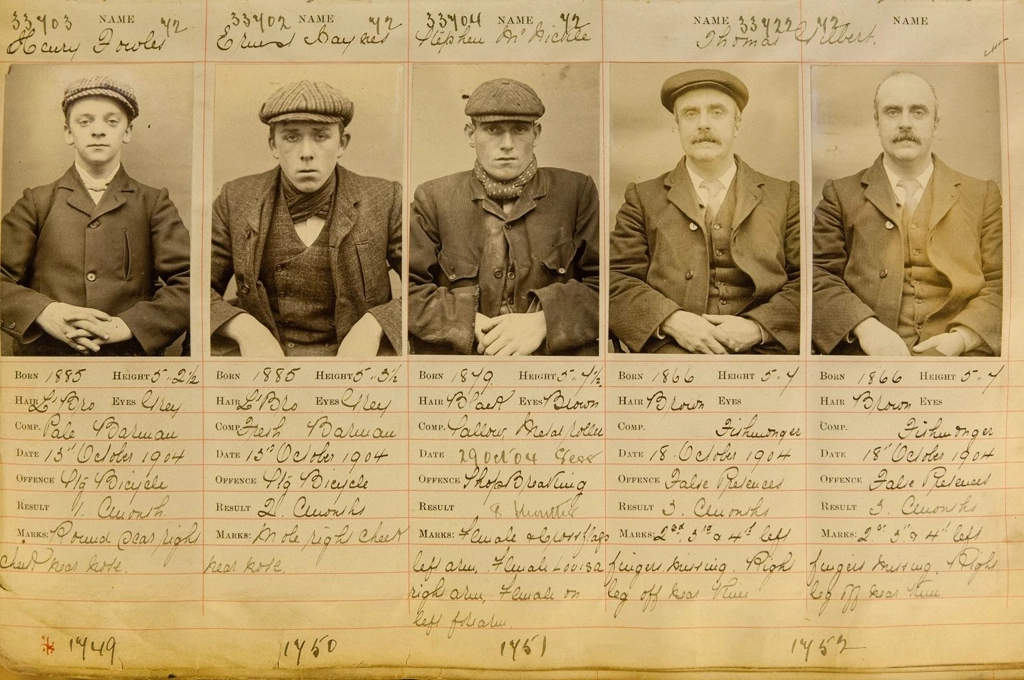 33703 NAME 42
Henry Fowler
33702 NAME 42
Ernest Haynes
33704 NAME 42
Stephen
NAME 33422 42
Thomas
NAME
BORN 1885 HEIGHT 5-2½
HAIR Lt Bro EYES Grey
COMP. Pale Barman
DATE 13th October 1904
OFFENCE Stg Bicycle
RESULT 1. Cmonth.
MARKS: Round scar right
cheek near nose.
1749
BORN 1885 HEIGHT 5-3½
HAIR Lt Bro EYES Grey
COMP. Fresh Barman
DATE 13th October 1904
OFFENCE Stg Bicycle
RESULT 2. Cmonths
MARKS: Mole right cheek
near nose.
1750
BORN 1879 HEIGHT 5-7½
HAIR Black EYES Brown
COMP. Sallow Metal roller
DATE 29 Oct 04 Sess
OFFENCE Shop Breaking
RESULT 8 months
MARKS: Female & cross flags
left arm, Female Louisa
right arm, Female on
left forearm.
1751
BORN 1866 HEIGHT 5-7
HAIR Brown EYES
COMP. Fishmonger
DATE 18. October 1904
OFFENCE False Pretences
RESULT 3. Cmonths
MARKS: 2nd 3rd & 4th left
fingers missing. Right
leg off near knee
BORN 1866 HEIGHT 5-7
HAIR Brown EYES
COMP. Fishmonger
DATE 18th October 1904
OFFENCE False Pretences
RESULT 3. Cmonths
MARKS: 2nd 3rd & 4th left
fingers missing, Right
leg off near knee.
1752